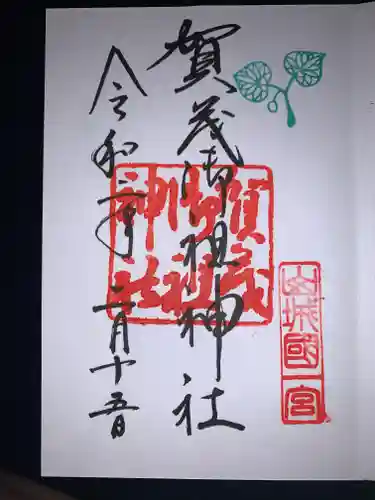 賀茂御祖神社
山城國一宮
賀茂
御祖
神社
令和二年二月十五日